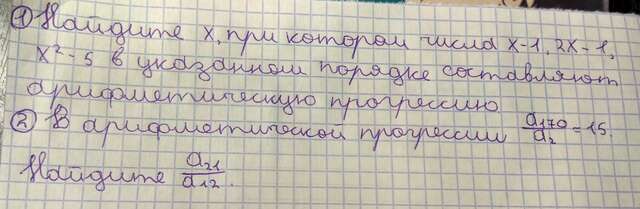 ① Найдите x, при котором числа x-1, 2x-1,
x²-5 в указанном порядке составляют
арифметическую прогрессию.
② В арифметической прогрессии a₁₇₀/a₂ = 15.
Найдите a₂₁/a₁₂.